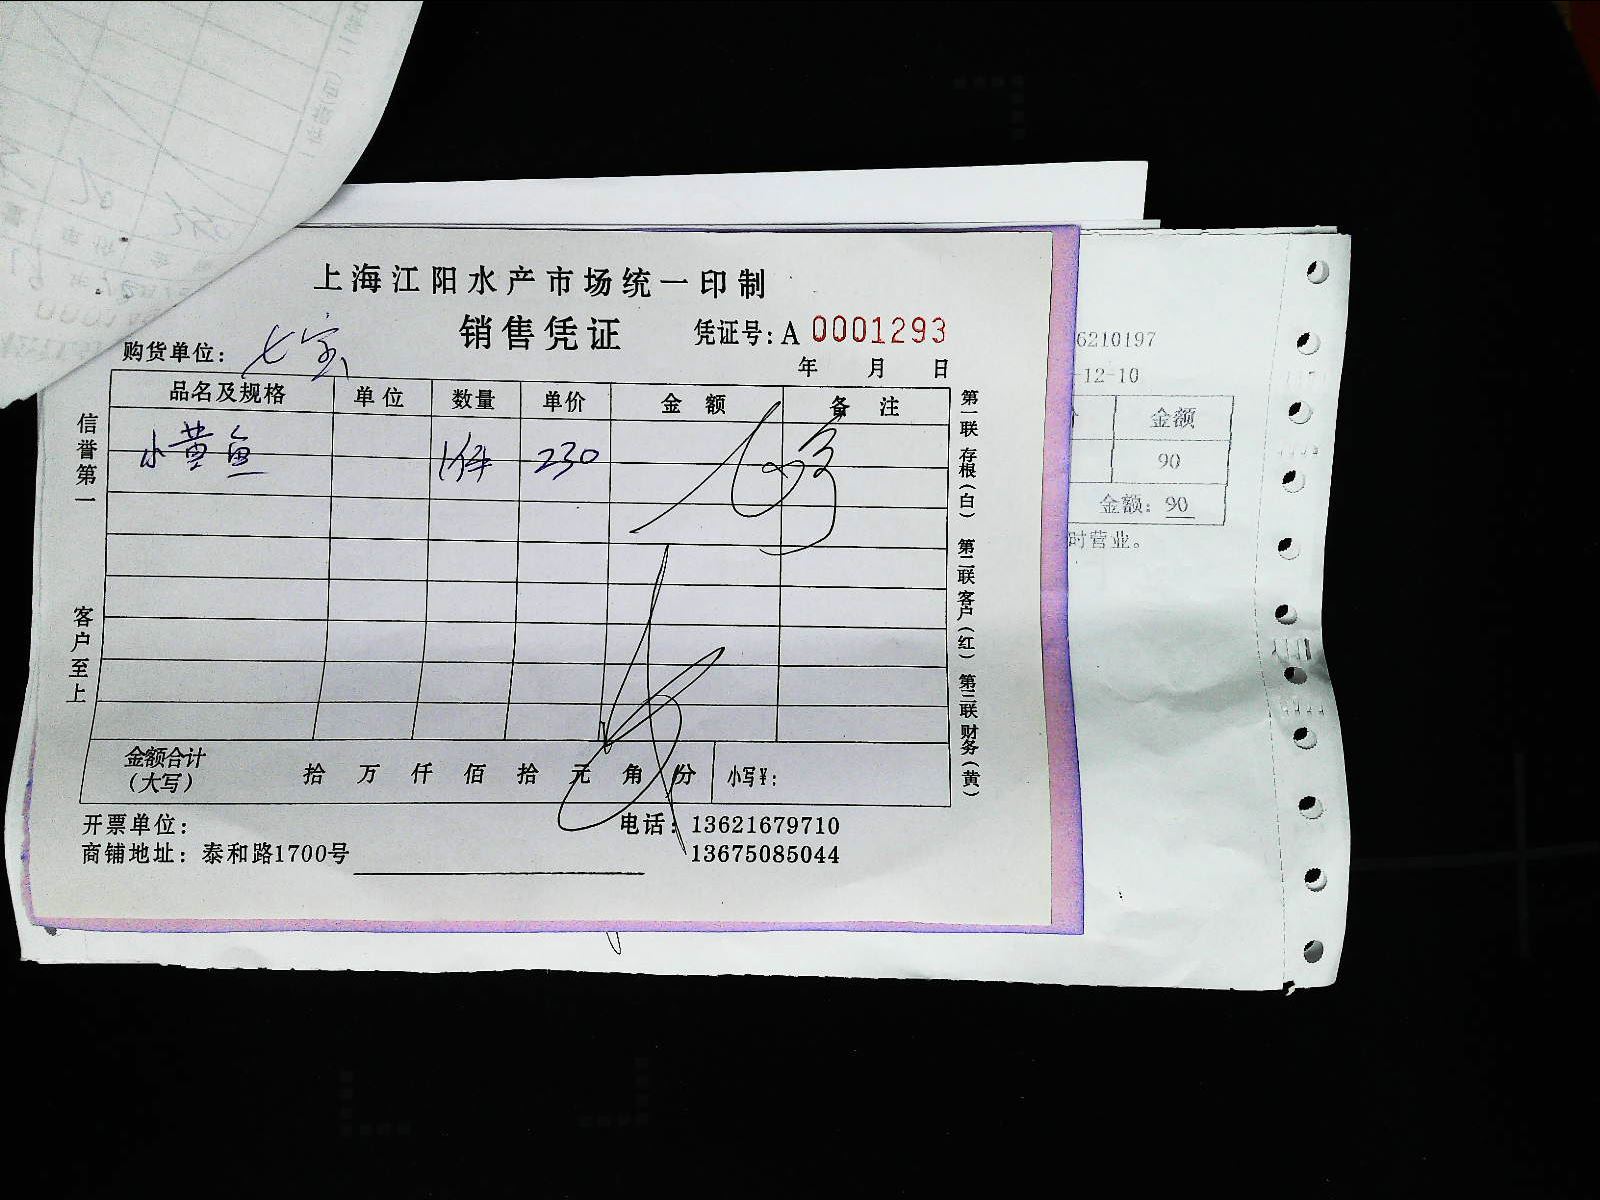 上海江阳水产市场统一印制
销售凭证
凭证号:A 0001293
购货单位: 七宝
年 月 日
品名及规格 单位 数量 单价 金额 备注
小黄鱼 1件 230
金额合计(大写) 拾 万 仟 佰 拾 元 角 分 小写¥:
开票单位: 电话: 13621679710
商铺地址: 泰和路1700号 13675085044
信誉第一
客户至上
第一联 存根(白) 第二联 客户(红) 第三联 财务(黄)
6210197
-12-10
金额
90
金额: 90
时营业。